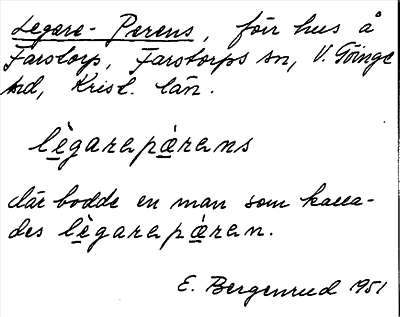 Legare-Perens, förr hus å
Farstorp, Farstorps sn, V. Göinge
hd, Krist. län.
lègarapärans
där bodde en man som kalla-
des lègarapäran.
E. Bergenrud 1951